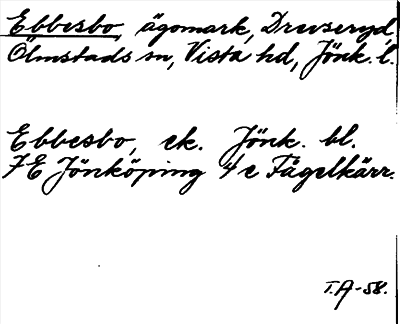 Ebbesbo, ägomark, Drevseryd,
Ölmstads sn, Vista hd, Jönk. l.
Ebbesbo, ek. Jönk. bl.
7E Jönköping 4 e Fågelkärr.
T.A-58.